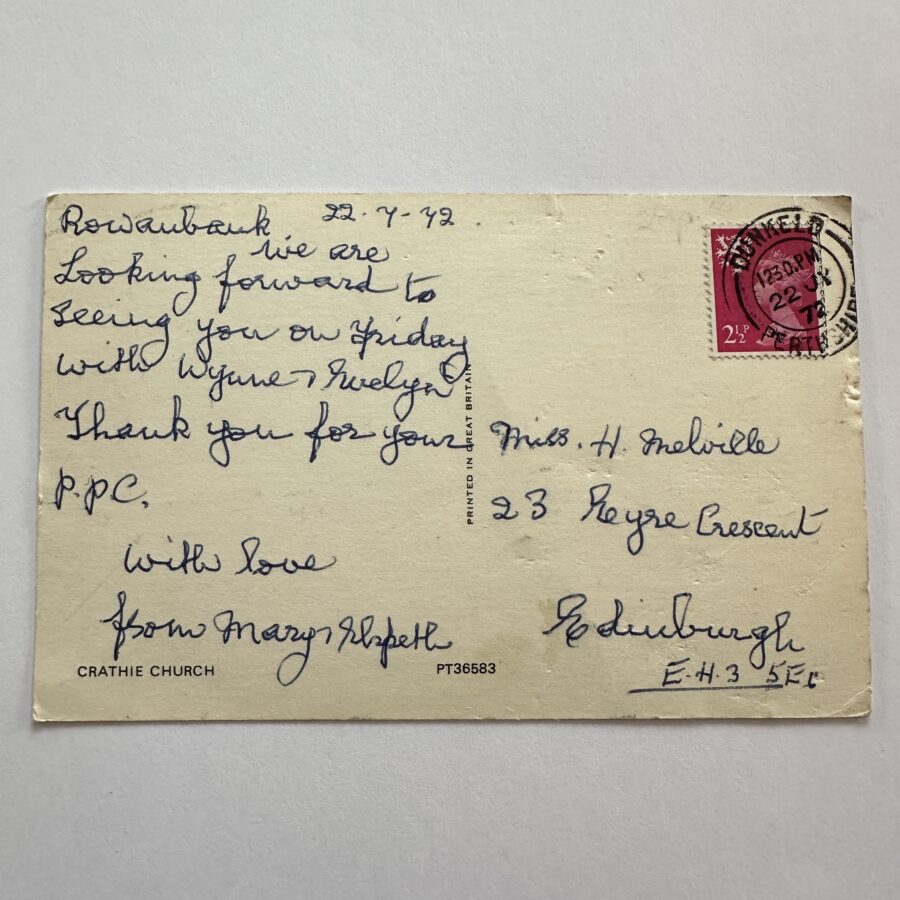 Rowanbank 22-7-72.
We are
Looking forward to
seeing you on Friday
with Wynne & Evelyn
Thank you for your
P.P.C.
With love
from Mary & Elspeth
CRATHIE CHURCH
PT36583
PRINTED IN GREAT BRITAIN
DUNKELD
12 30 PM
22 JY
72
PERTHSHIRE
2½P
Miss. H. Melville
23 Eyre Crescent
Edinburgh
E.H.3 5E